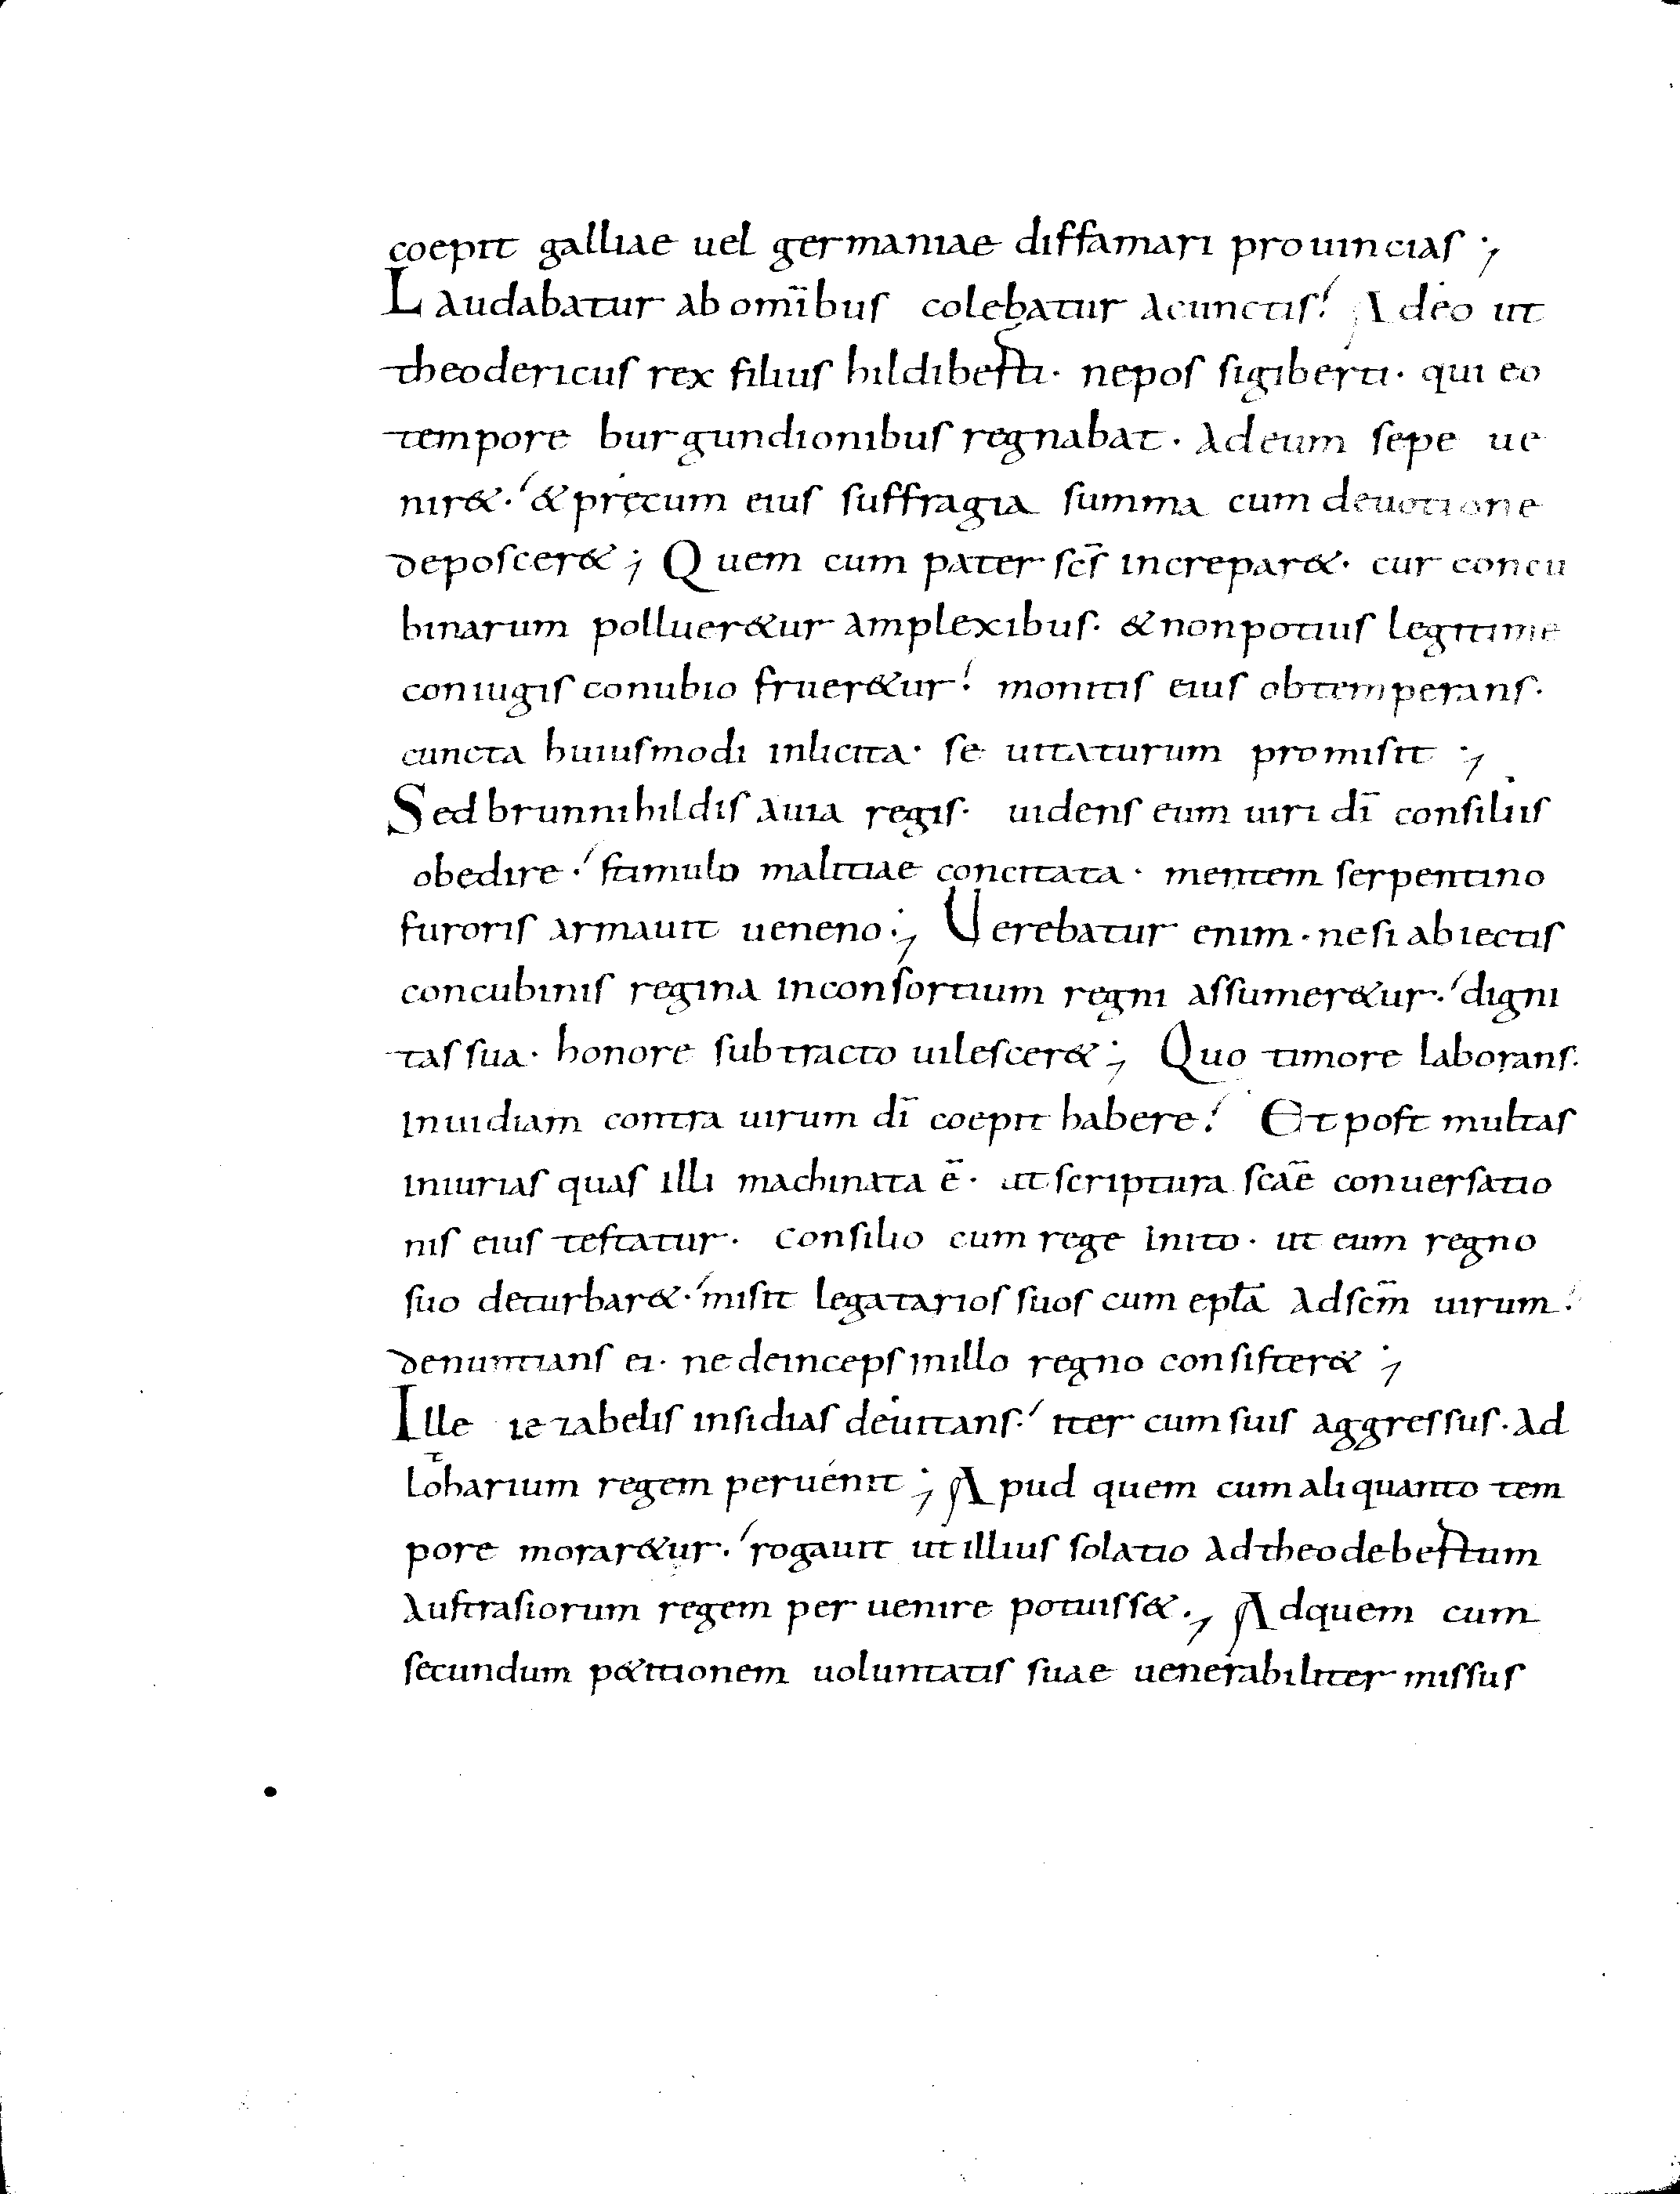 coepit galliae uel germaniae diffamari prouincias ;
Laudabatur ab omībus colebatur acunctis! Adeo ut
theodericus rex filius hildiberti · nepos sigiberti · qui eo
tempore burgundionibus regnabat · Adeum sepe ue
nir&·' & pręcum eius suffragia summa cum deuotione
deposcer& ; Quem cum pater scs̄ increpar& · cur concu
binarum polluer&ur amplexibus · & nonpotius legitime
coniugis conubio fruer&ur! monitis eius obtemperans ·
cuncta huiusmodi inlicita · se uitaturum promisit ;
Sed brunnihildis auia regis · uidens eum uiri dī consiliis
obedire ·' stimulo malitiae concitata · mentem serpentino
furoris armauit ueneno ; Uerebatur enim · nesi abiectis
concubinis regina inconsortium regni assumer&ur ·' digni
tas sua · honore subtracto uilescer& ; Quo timore laborans ·
inuidiam contra uirum dī coepit habere! Et post multas
iniurias quas illi machinata ē · ut scriptura scāe conuersatio
nis eius testatur · consilio cum rege inito · ut eum regno
suo deturbar& ·' misit legatarios suos cum eplā adscm̄ uirum ·'
denuntians ei · ne deinceps inillo regno consister& ;
Ille iezabelis insidias deuitans ·' iter cum suis aggressus · ad
lotharium regem peruenit ; Apud quem cum aliquanto tem
pore morar&ur ·' rogauit ut illius solatio adtheodebertum
austrasiorum regem peruenire potuiss& ; Adquem cum
secundum p&itionem uoluntatis suae uenerabiliter missus